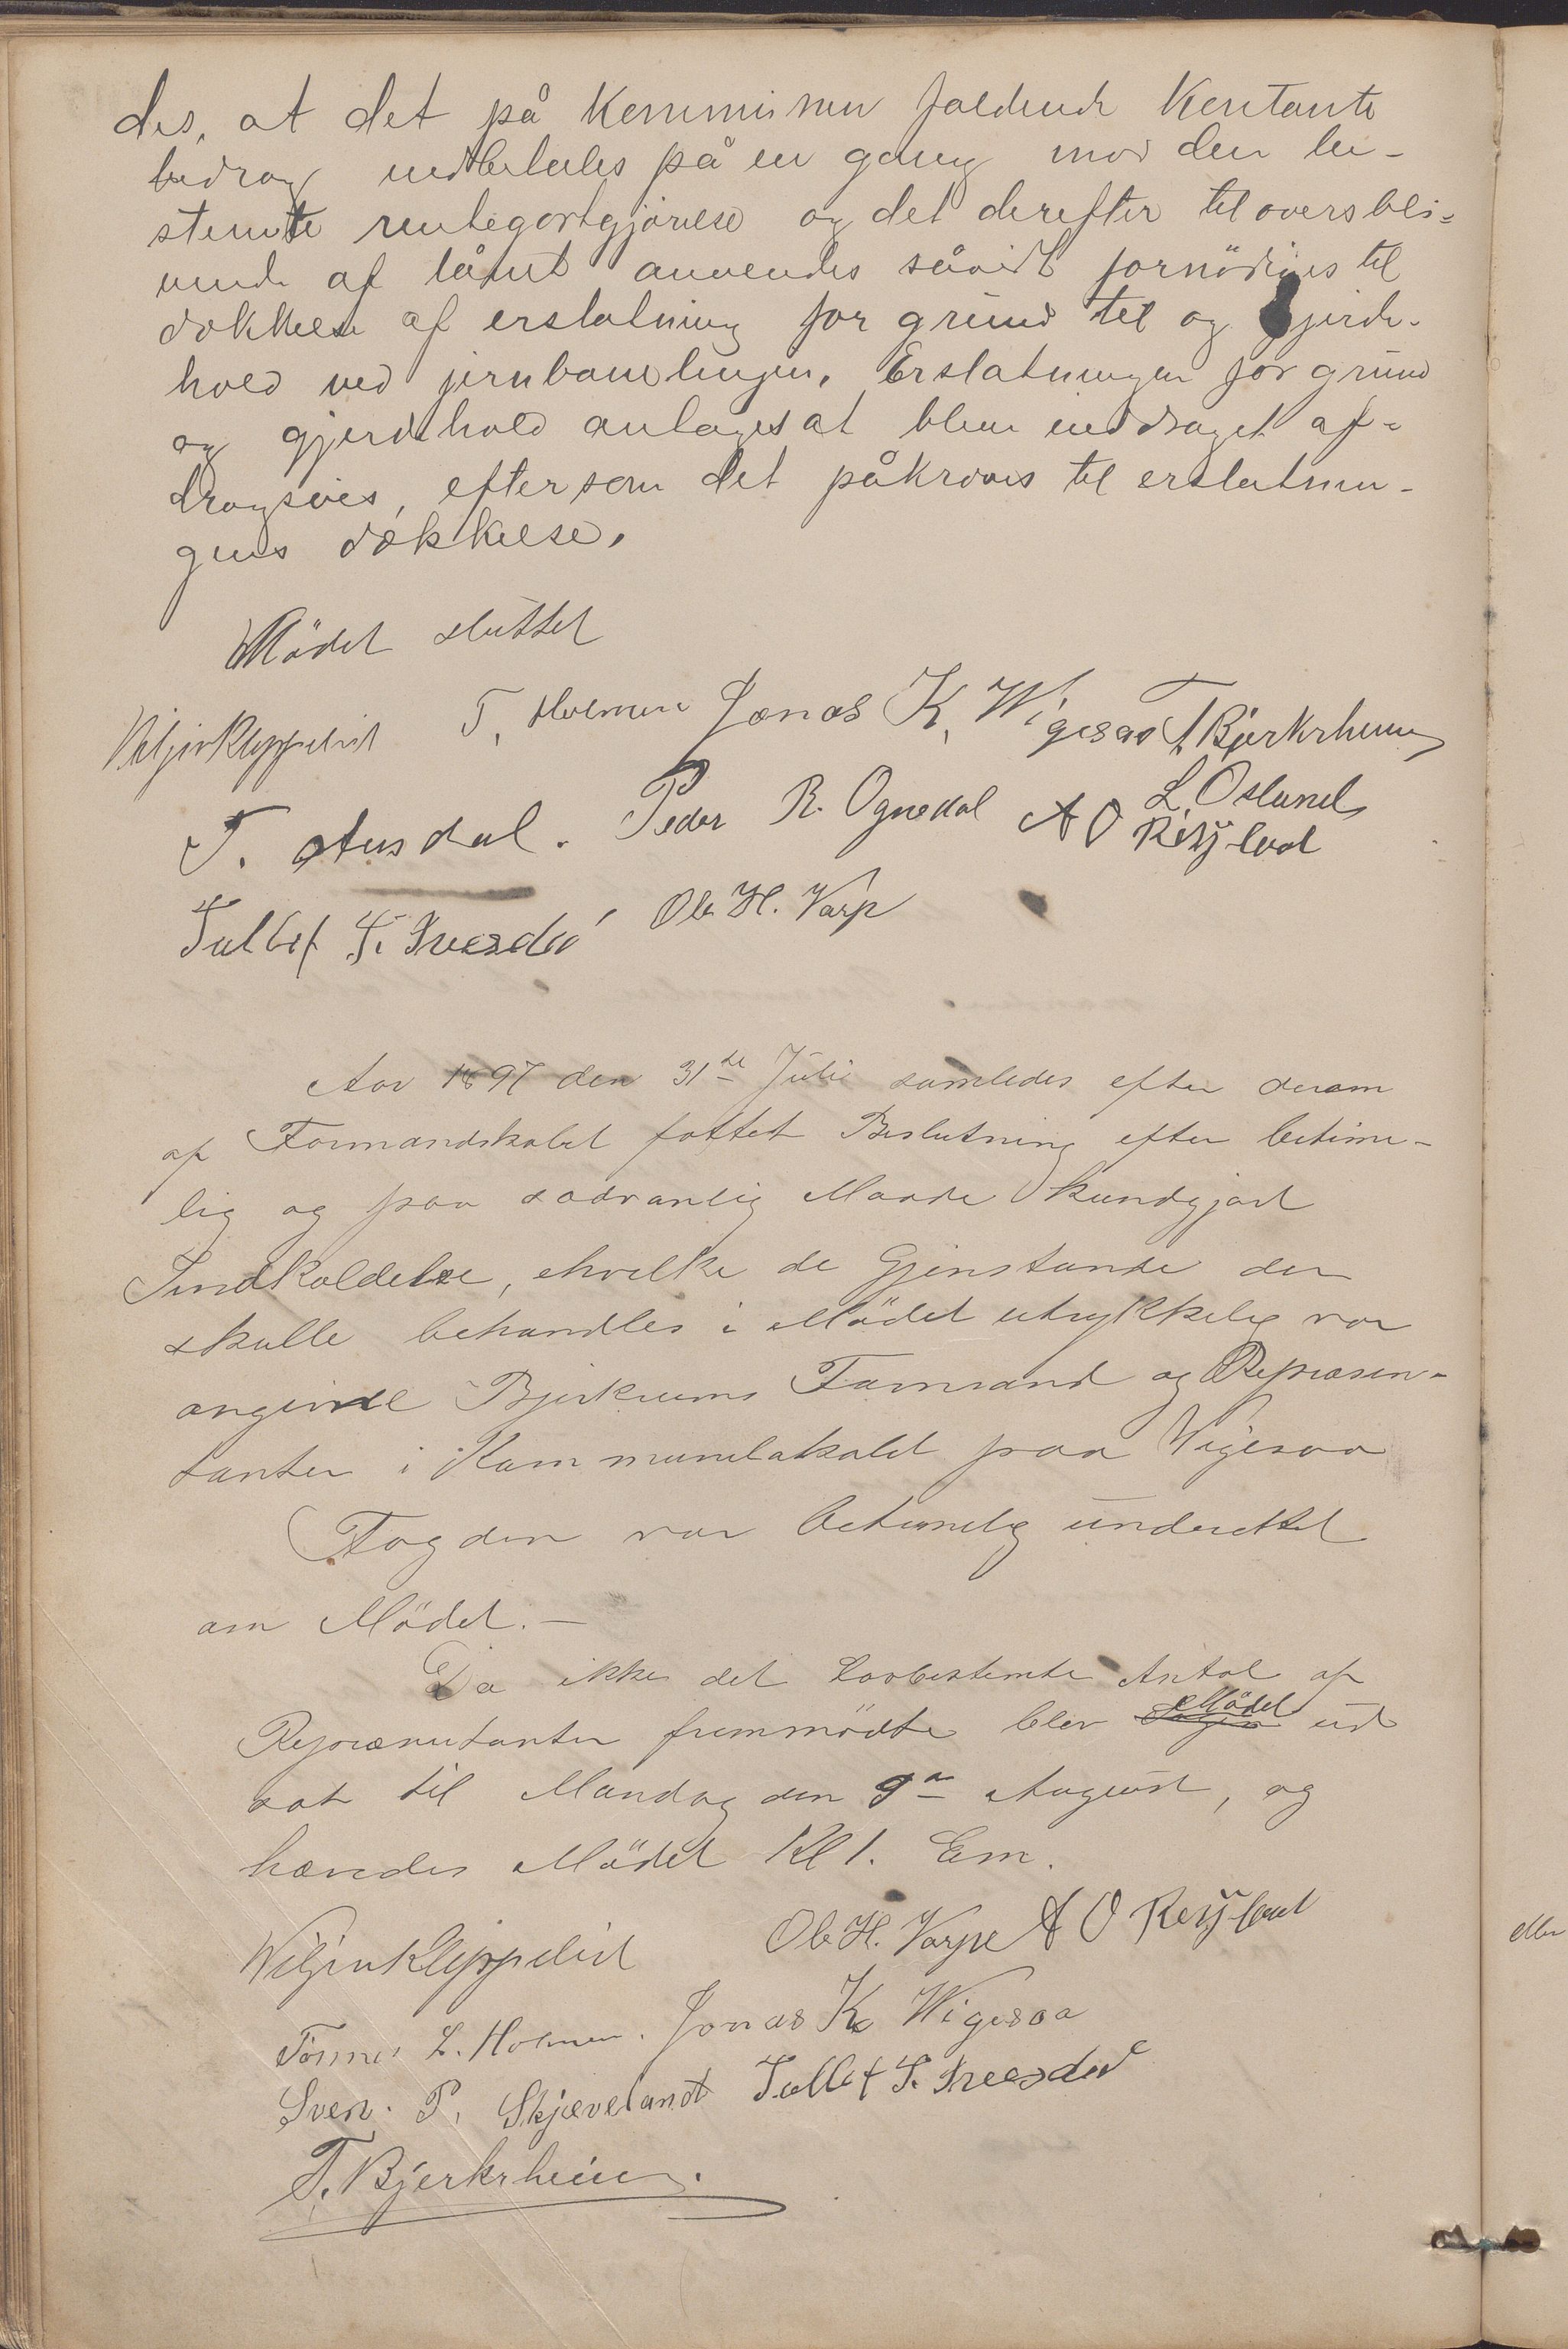 des, at det på Kommunen faldende Kontante
bidrag indbetales på en gang mod den be-
stemte rentegodtgjørelse og det derefter tiloversbli-
vende af lånet anvendes såvidt fornødiges til
dækkelse af erstatning for grund til og gjerde-
hold ved jernbanelinjen. Erstatningen for grund
og gjerdehold antages at blive inddraget af-
dragsvis, eftersom det påkræves til erstatnin-
gens dækkelse.
Mödet sluttet
Wiljer Kleppelid T. Holmen Jonas K. Wigesaa T. Bjerkrheim
T. Ausdal. Peder R. Ognedal A O Röysland L. Osland
Tallef T. Svesdal Ole H. Varp
Aar 1897 den 31te Juli samledes efter derom
af Formandskabet fattet Beslutning efter betime-
lig og paa sædvanlig Maade kundgjort
Indkaldelse, i hvilke de Gjenstande der
skulle behandles i Mödet utrykkelig var
angivne Bjerkreims Formænd og Repræsen-
tanter i Kommunelokalet paa Wigesaa
Fogden var betimelig underettet
om Mödet. -
Da ikke det Lovbestemte Antal af
Repræsentanter fremmödte blev Mödet ud
sat til Mandag den 9de August, og
hævedes Mödet Kl 1. Em.
Wiljer Kleppelid Ole H. Varpe A O Röysland
Tönnes L. Holmen. Jonas K. Wigesaa
Sven. P. Skjævelandt Tallef T. Svesdal
T. Bjerkrheim.